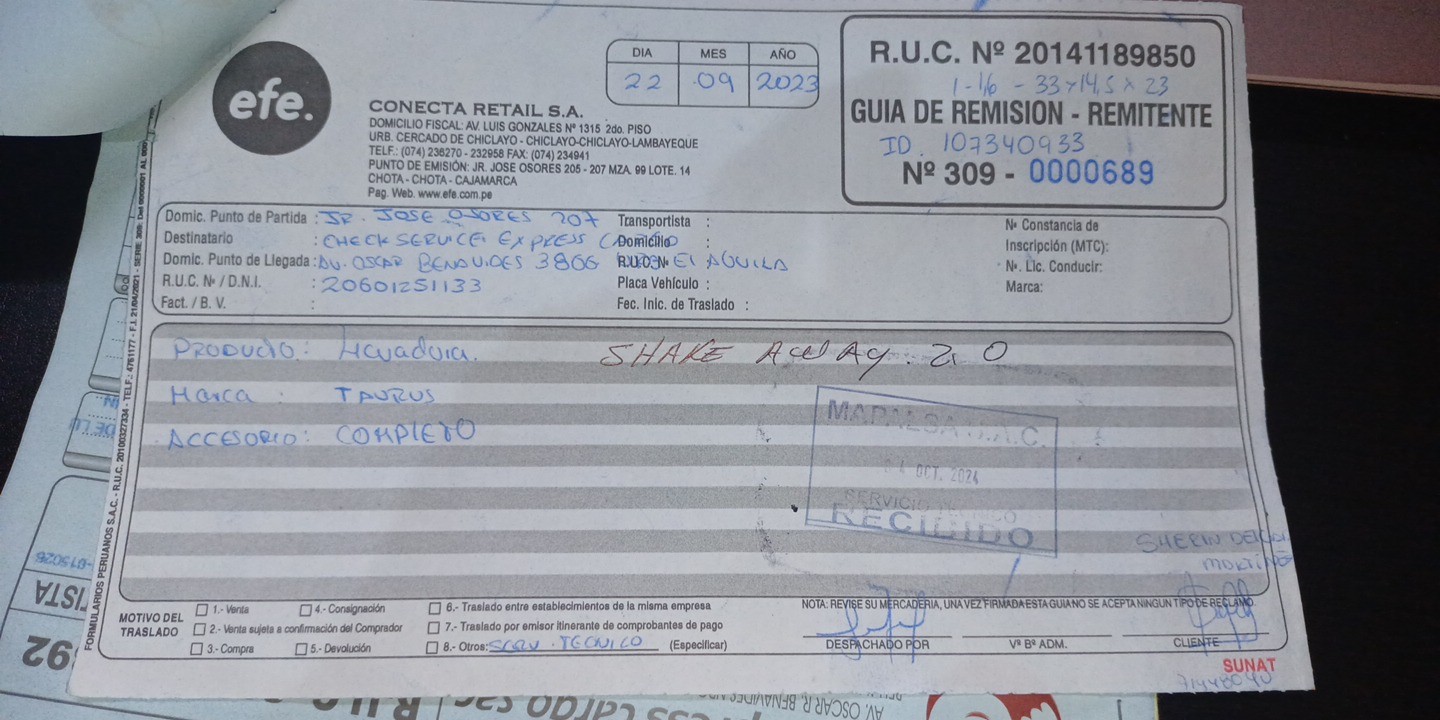 efe.
CONECTA RETAIL S.A.
DOMICILIO FISCAL: AV. LUIS GONZALES Nº 1315 2do. PISO
URB. CERCADO DE CHICLAYO - CHICLAYO-CHICLAYO-LAMBAYEQUE
TELF.: (074) 236270 - 232958 FAX: (074) 234941
PUNTO DE EMISIÓN: JR. JOSE OSORES 205 - 207 MZA. 99 LOTE. 14
CHOTA - CHOTA - CAJAMARCA
Pag. Web. www.efe.com.pe
DIA MES AÑO
22 09 2023
R.U.C. Nº 20141189850
33x14,5 x 23
GUIA DE REMISION - REMITENTE
ID 107340933
Nº 309 - 0000689
Domic. Punto de Partida : JR. JOSE OSORES 207
Destinatario : CHECK SERVICE EXPRESS
Domic. Punto de Llegada: AV. OSCAR BENAVIDES 3866 EL AGUILA
R.U.C. Nº / D.N.I. : 20601251133
Fact. / B. V. :
Transportista :
Domicilio :
R.U.C. Nº
Placa Vehículo :
Fec. Inic. de Traslado :
Nº Constancia de
Inscripción (MTC):
Nº. Lic. Conducir:
Marca:
PRODUCTO: Licuadora. SHAKE 2.0
Marca : TAURUS
ACCESORIO: COMPLETO
MAPALSA S.A.C.
04 OCT. 2024
SERVICIO TECNICO
RECIBIDO
SHERIN
MOTIVO DEL
TRASLADO
1.- Venta
2.- Venta sujeta a confirmación del Comprador
3.- Compra
4.- Consignación
5.- Devolución
6.- Traslado entre establecimientos de la misma empresa
7.- Traslado por emisor itinerante de comprobantes de pago
8.- Otros: SERV. TECNICO (Especificar)
NOTA: REVISE SU MERCADERIA, UNA VEZ FIRMADA ESTA GUIA NO SE ACEPTA NINGUN TIPO DE RECLAMO.
DESPACHADO POR
Vº Bº ADM.
CLIENTE
SUNAT
FORMULARIOS PERUANOS S.A.C. - R.U.C. 20100327334 - TELF.: 4761177 - F.I. 21/04/2021 - SERIE 309: Del 0000001 AL